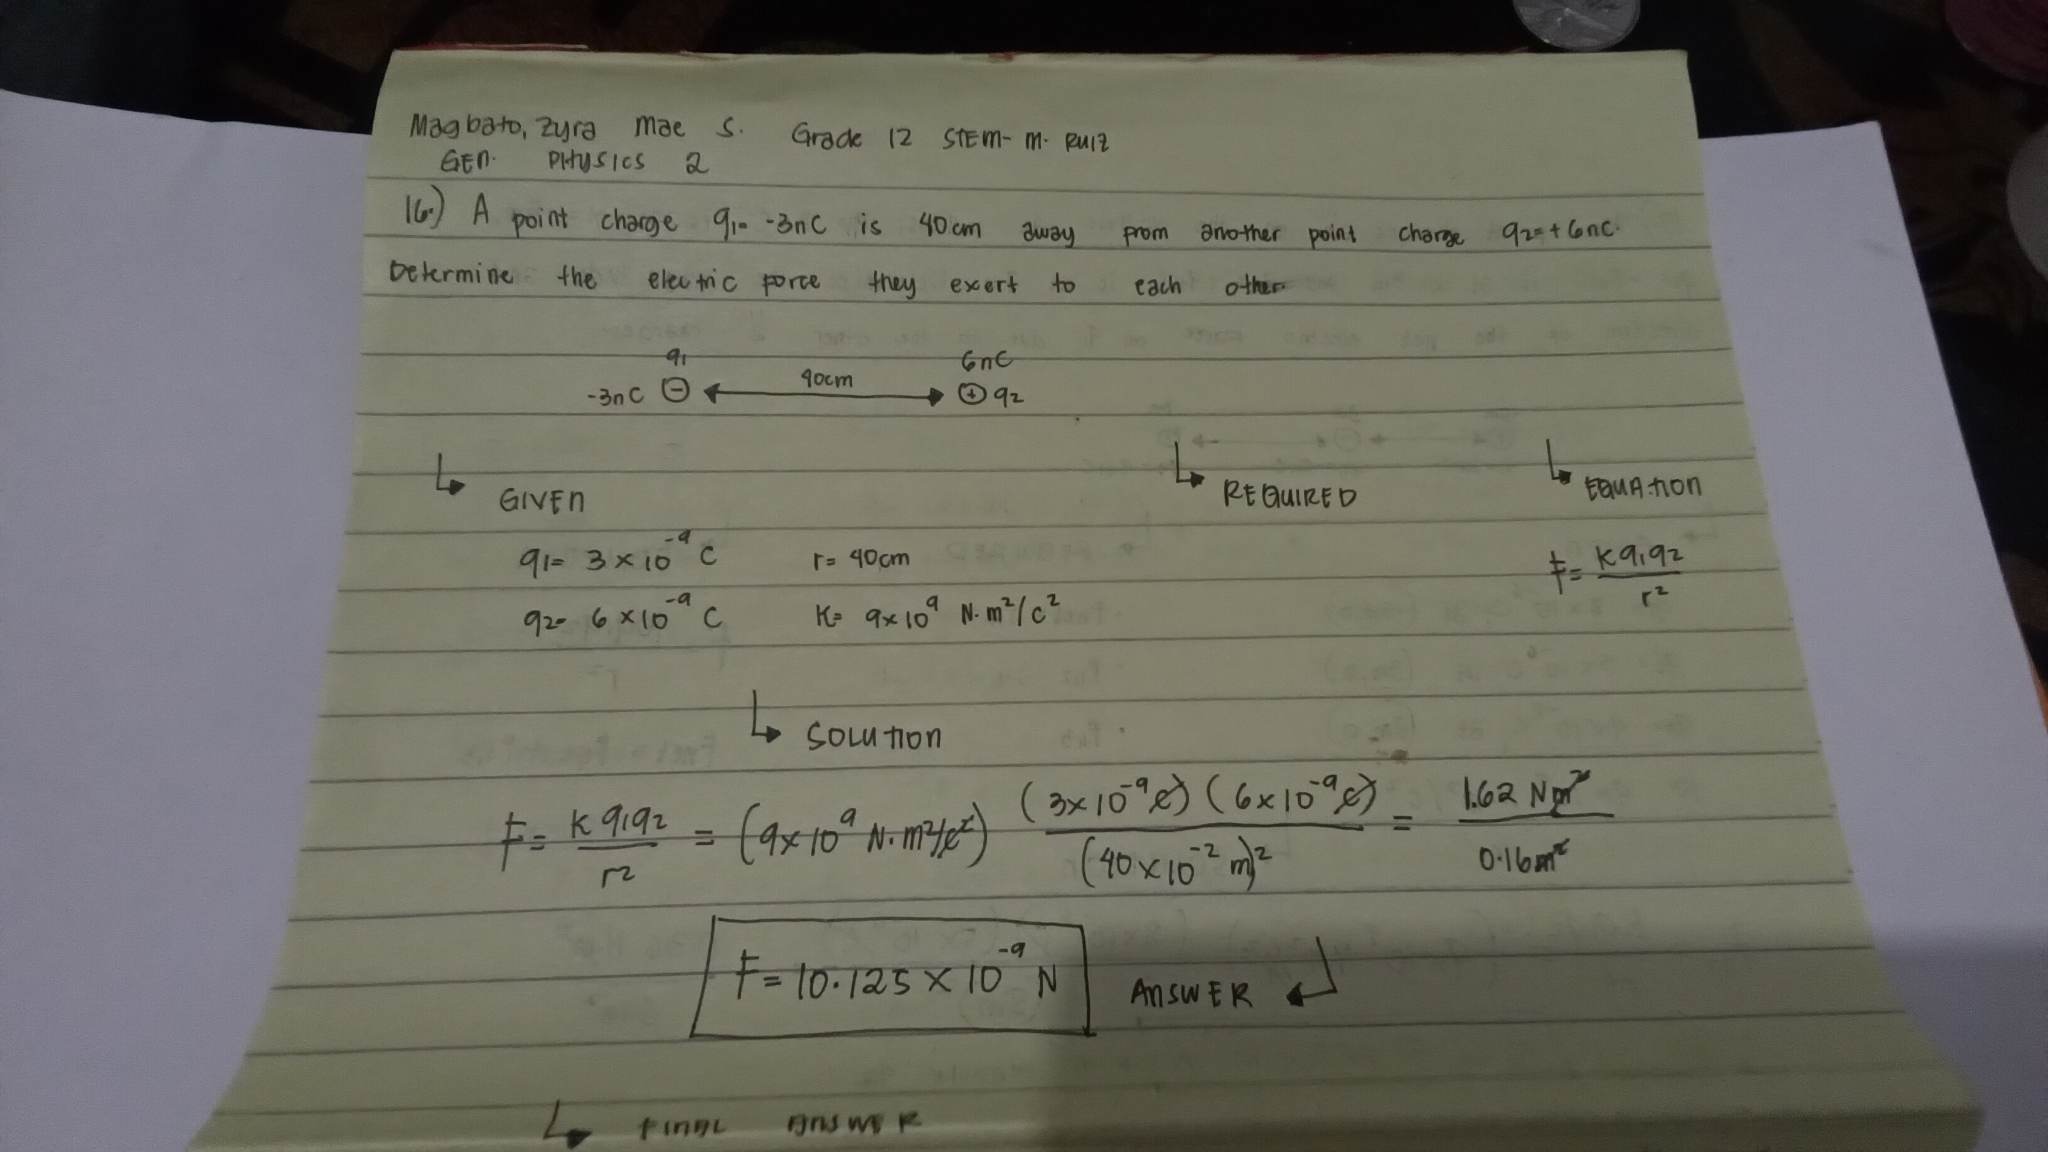 Magbato, Zyra Mae S. Grade 12 STEM- M. RUIZ
GEN. PHYSICS 2
16.) A point charge q1= -3nC is 40cm away from another point charge q2=+6nC.
Determine the electric force they exert to each other
q1 6nC
-3nC ⊖ 40cm ⊕ q2
GIVEN REQUIRED EQUATION
q1= 3×10⁻⁹ C r= 40cm F= Kq1q2/r²
q2= 6×10⁻⁹ C K= 9×10⁹ N·m²/C²
SOLUTION
F= Kq1q2/r² = (9×10⁹ N·m²/C²) (3×10⁻⁹C)(6×10⁻⁹C)/(40×10⁻² m)² = 1.62 Nm²/0.16m²
F= 10.125 × 10⁻⁹ N ANSWER
FINAL ANSWER